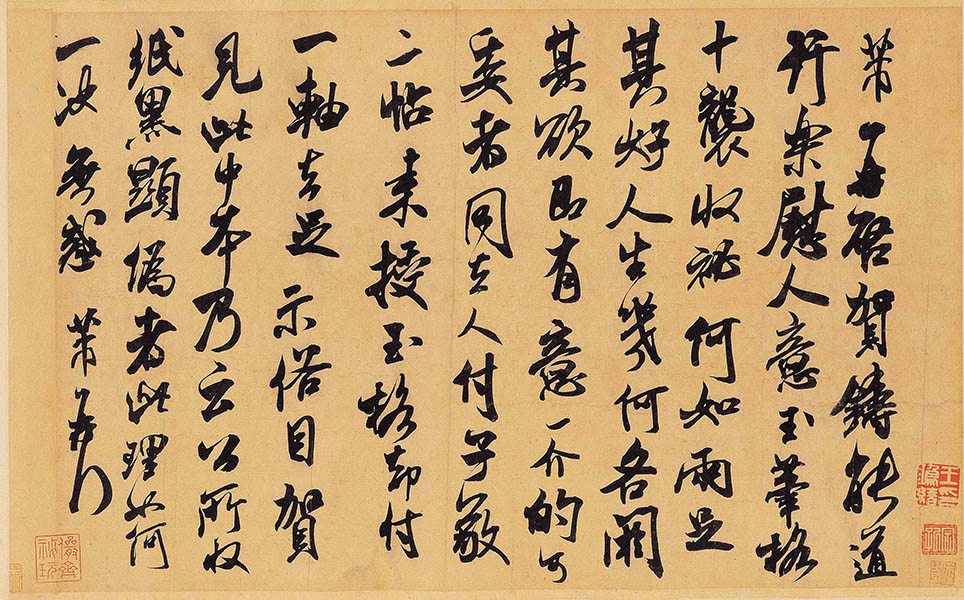 芾啓賀鑄能道
行樂慰人意玉筆格
十襲收祕何如兩足
其好人生幾何各閼
其欲即有意一介的可
委者同去人付子敬
二帖來授玉格却付
一軸去足示俗目賀
見此中本乃云公所收
紙黑顯偽者此理如何
一決無惑芾
儼齋祕玩